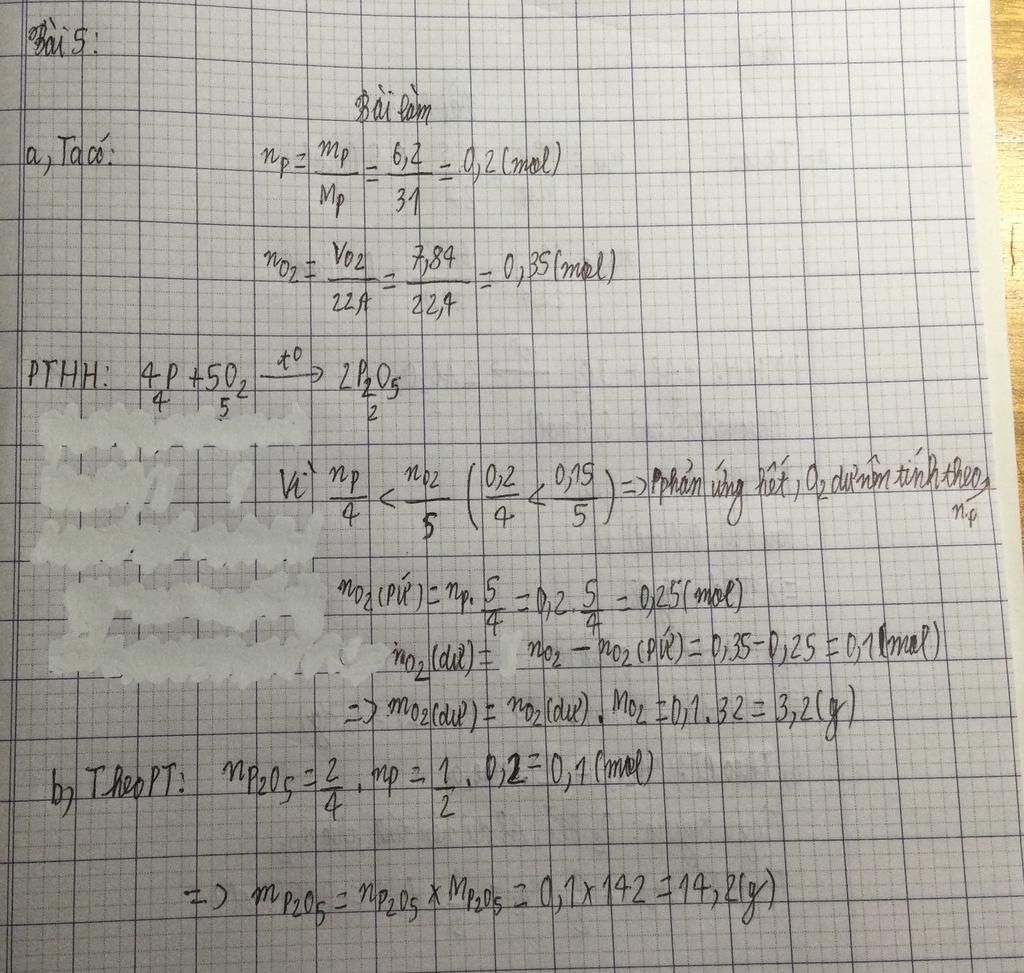 Bài 5:
Bài làm
a, Ta có: nP = mP/MP = 6,2/31 = 0,2 (mol)
nO2 = VO2/22,4 = 7,84/22,4 = 0,35 (mol)
PTHH: 4P + 5O2 —t⁰→ 2P2O5
4 5 2
Vì nP/4 < nO2/5 (0,2/4 < 0,15/5) => P phản ứng hết, O2 dư nên tính theo nP
nO2 (pứ) = nP . 5/4 = 0,2 . 5/4 = 0,25 (mol)
nO2 (dư) = nO2 – nO2 (pứ) = 0,35 – 0,25 = 0,1 (mol)
=> mO2 (dư) = nO2 (dư) . MO2 = 0,1 . 32 = 3,2 (g)
b, Theo PT: nP2O5 = 2/4 . nP = 1/2 . 0,2 = 0,1 (mol)
=> mP2O5 = nP2O5 × MP2O5 = 0,1 × 142 = 14,2 (g)